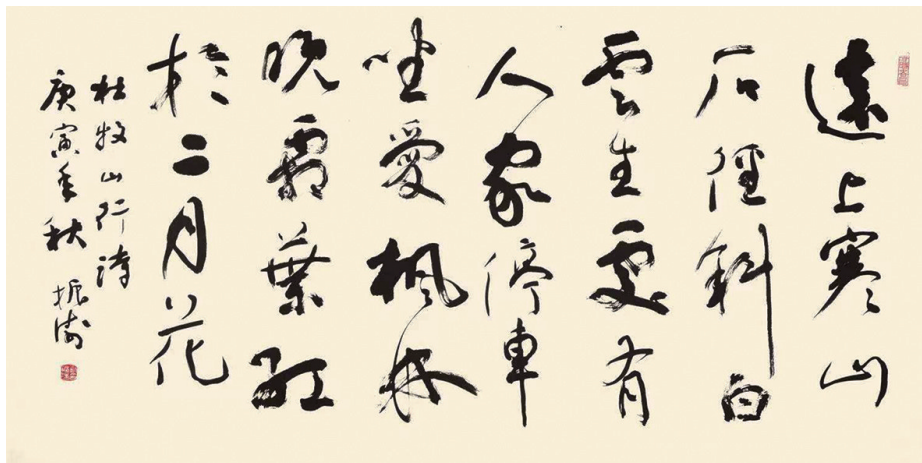 遠上寒山
石徑斜白
雲生處有
人家停車
坐愛楓林
晚霜葉紅
於二月花
杜牧山行詩
庚寅年秋 振濤